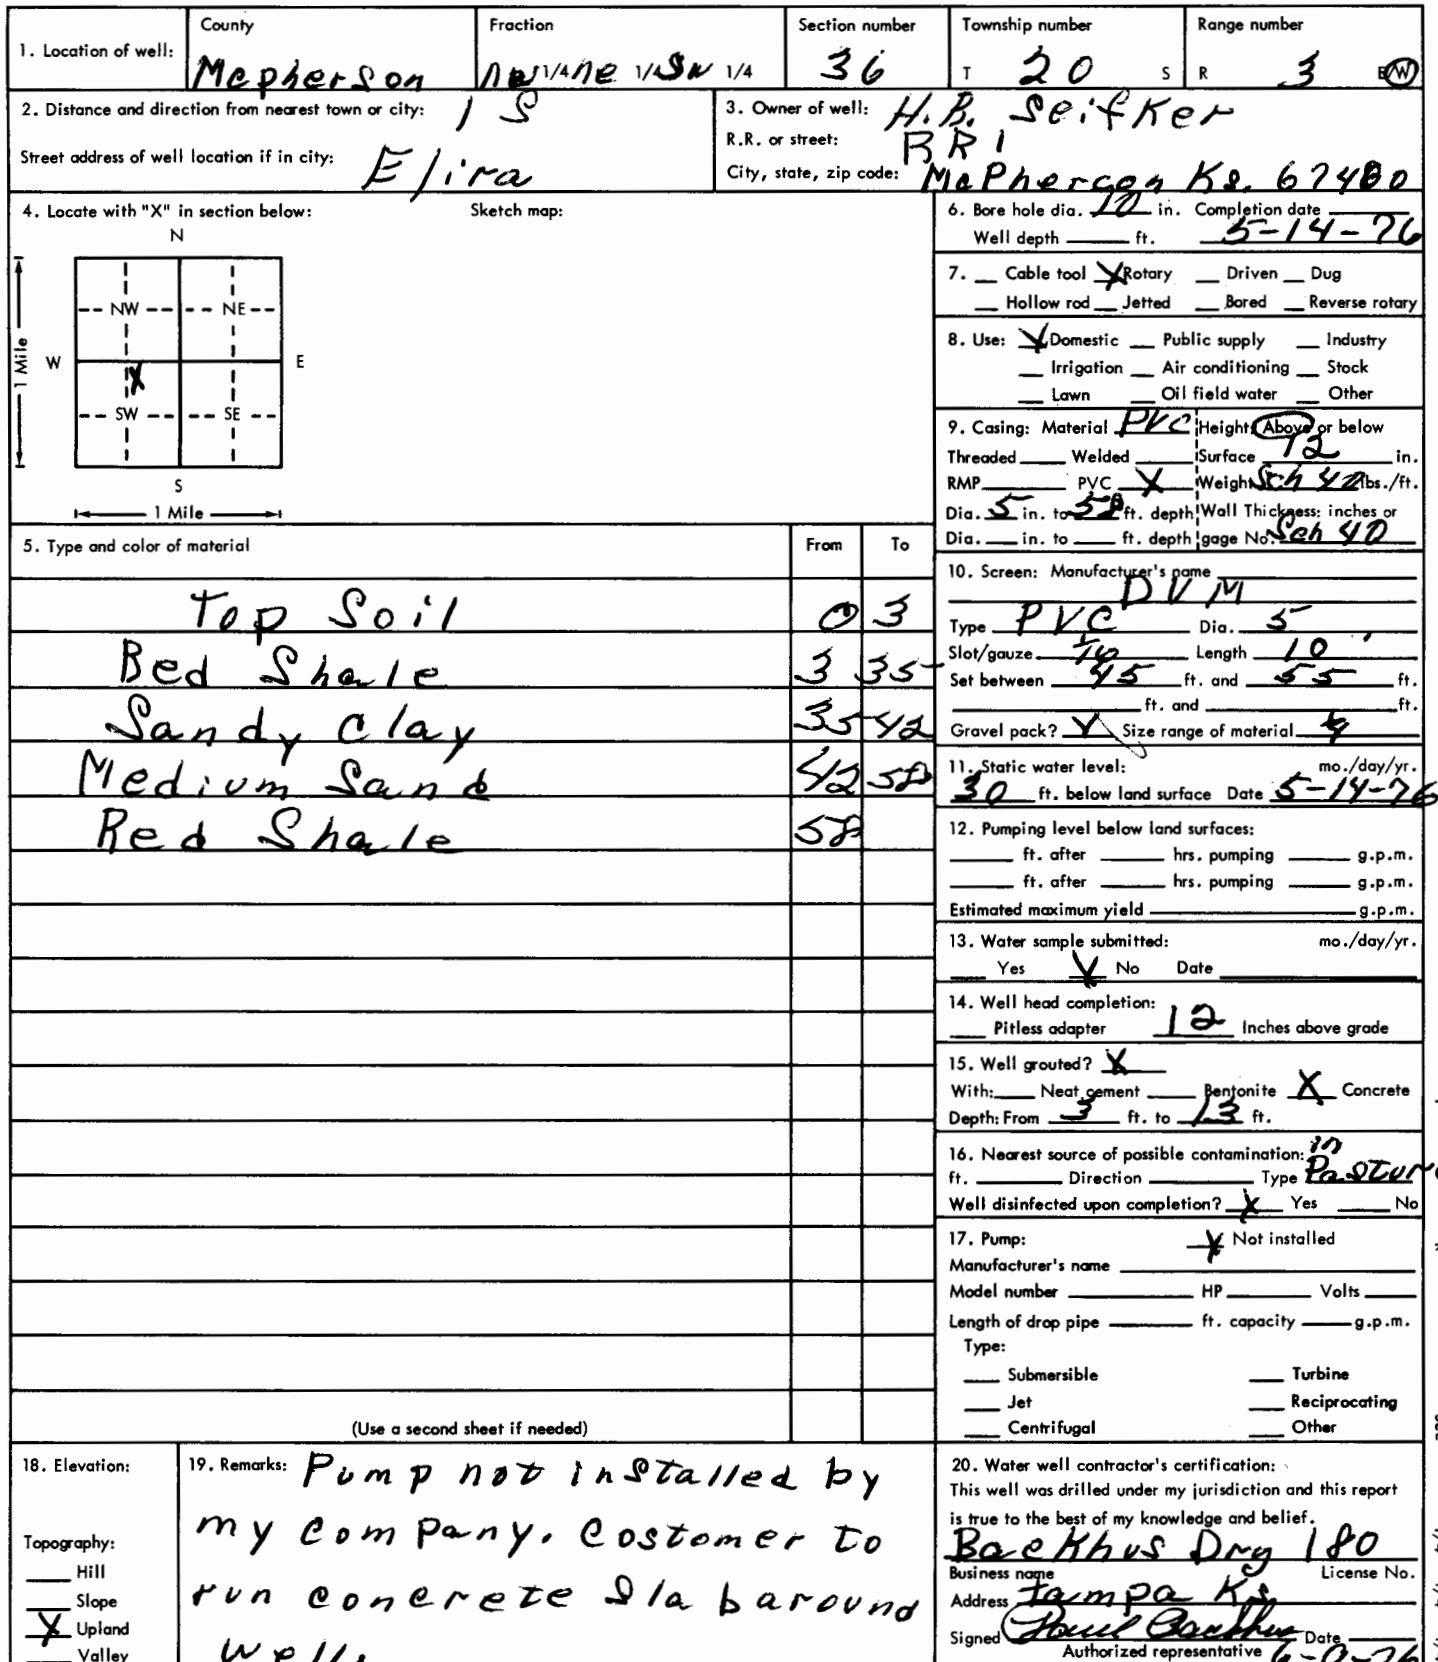 County Fraction Section number Township number Range number
1. Location of well: Mcpherson 1/4 ne 1/4 SW 1/4 36 T 20 S R 3 E(W)
2. Distance and direction from nearest town or city: 1 S
Street address of well location if in city: Elira
3. Owner of well: H.B. Seifker
R.R. or street: RR1
City, state, zip code: McPherson Ks. 67460
4. Locate with "X" in section below: Sketch map:
N
NW NE
W E
X
SW SE
S
1 Mile
1 Mile
5. Type and color of material From To
Top Soil 0 3
Bed Shale 3 35
Sandy Clay 35 42
Medium Sand 42 58
Red Shale 58
(Use a second sheet if needed)
6. Bore hole dia. 10 in. Completion date
Well depth ft. 5-14-76
7. Cable tool X Rotary Driven Dug
Hollow rod Jetted Bored Reverse rotary
8. Use: X Domestic Public supply Industry
Irrigation Air conditioning Stock
Lawn Oil field water Other
9. Casing: Material PVC Height: Above or below
Threaded Welded Surface 12 in.
RMP PVC X Weight Sch 40 lbs./ft.
Dia. 5 in. to 58 ft. depth Wall Thickness: inches or
Dia. in. to ft. depth gage No. Sch 40
10. Screen: Manufacturer's name
DVM
Type PVC Dia. 5
Slot/gauze Length 10'
Set between 45 ft. and 55 ft.
ft. and ft.
Gravel pack? Y Size range of material
11. Static water level: mo./day/yr.
30 ft. below land surface Date 5-14-76
12. Pumping level below land surfaces:
ft. after hrs. pumping g.p.m.
ft. after hrs. pumping g.p.m.
Estimated maximum yield g.p.m.
13. Water sample submitted: mo./day/yr.
Yes X No Date
14. Well head completion:
Pitless adapter 12 Inches above grade
15. Well grouted? X
With: Neat cement Bentonite X Concrete
Depth: From 3 ft. to 13 ft.
16. Nearest source of possible contamination: in
ft. Direction Type Pasture
Well disinfected upon completion? X Yes No
17. Pump: X Not installed
Manufacturer's name
Model number HP Volts
Length of drop pipe ft. capacity g.p.m.
Type:
Submersible Turbine
Jet Reciprocating
Centrifugal Other
18. Elevation:
Topography:
Hill
Slope
X Upland
Valley
19. Remarks: Pump not installed by
my company. Costomer to
run concrete sla baround
well.
20. Water well contractor's certification:
This well was drilled under my jurisdiction and this report
is true to the best of my knowledge and belief.
Backhus Drg 180
Business name License No.
Address Tampa Ks
Signed Paul Backhus Date
Authorized representative